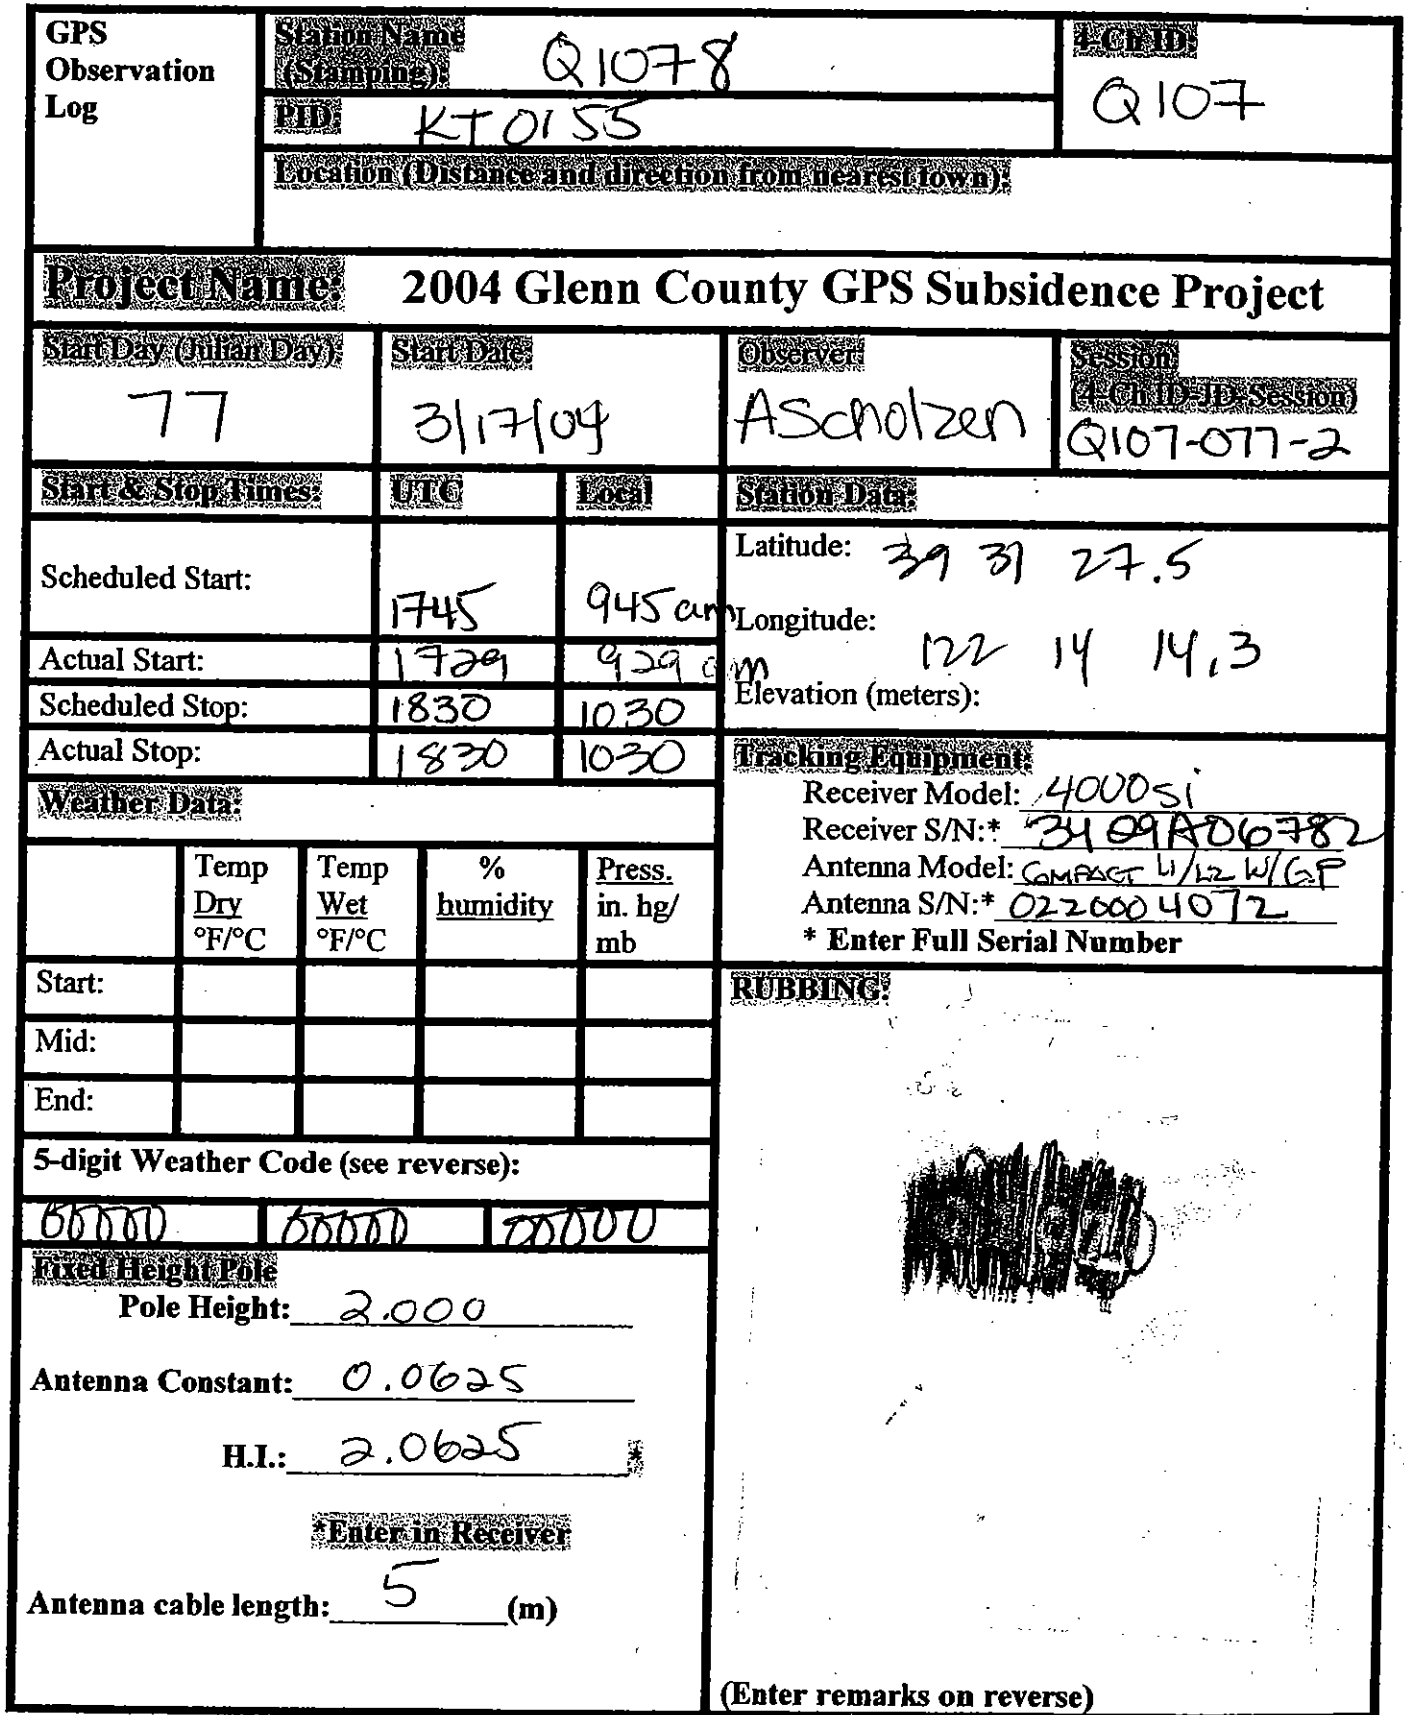 GPS
Observation
Log
Station Name
(Stamping): Q1078
4-Ch ID:
Q107
PID: KT0155
Location (Distance and direction from nearest town):
Project Name: 2004 Glenn County GPS Subsidence Project
Start Day (Julian Day):
77
Start Date:
3/17/04
Observer:
AScholzen
Session:
(4-Ch ID-JD-Session)
Q107-077-2
Start & Stop Times: UTC Local
Scheduled Start: 1745 945 am
Actual Start: 1729 929 am
Scheduled Stop: 1830 1030
Actual Stop: 1830 1030
Station Data:
Latitude: 39 31 27.5
Longitude:
122 14 14.3
Elevation (meters):
Tracking Equipment:
Receiver Model: 4000si
Receiver S/N:* 3409A06782
Antenna Model: COMPACT L1/L2 W/GP
Antenna S/N:* 0220004072
* Enter Full Serial Number
Weather Data:
Temp Dry °F/°C
Temp Wet °F/°C
% humidity
Press. in. hg/ mb
Start:
Mid:
End:
5-digit Weather Code (see reverse):
00000 00000 00000
Fixed Height Pole
Pole Height: 2.000
Antenna Constant: 0.0625
H.I.: 2.0625 *
*Enter in Receiver
Antenna cable length: 5 (m)
RUBBING:
(Enter remarks on reverse)